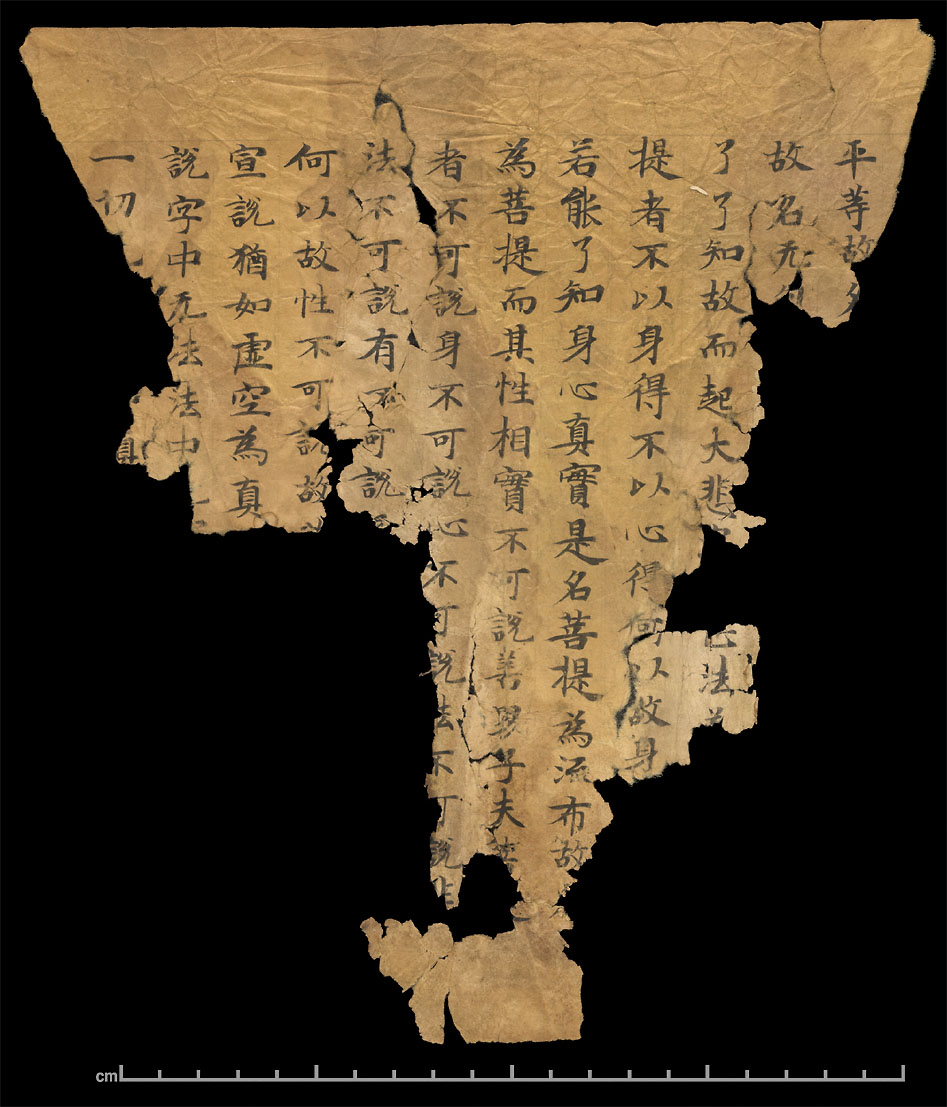 平等故名
故名无
了了知故而起大悲心法為
提者不以身得不以心得何以故身
若能了知身心真實是名菩提為流布故
為菩提而其性相實不可說善男子夫菩
者不可說身不可說心不可說法不可說非
法不可說有不可說
何以故性不可說故
宣說猶如虛空為真
說字中无法法中
一切真